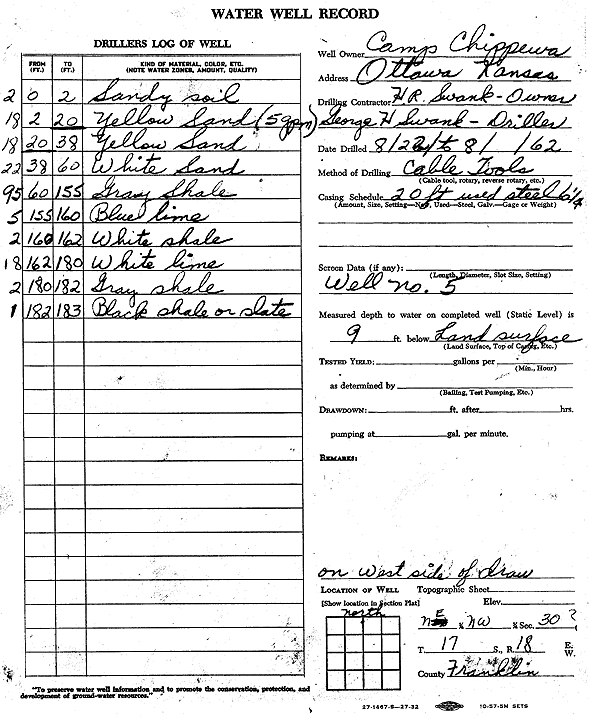 WATER WELL RECORD
DRILLERS LOG OF WELL
FROM (FT.) TO (FT.) KIND OF MATERIAL, COLOR, ETC. (NOTE WATER ZONES, AMOUNT, QUALITY)
2 0 2 Sandy soil
18 2 20 Yellow Sand (5 gpm)
18 20 38 Yellow Sand
22 38 60 White Sand
95 60 155 Gray Shale
5 155 160 Blue lime
2 160 162 White shale
18 162 180 White lime
2 180 182 Gray shale
1 182 183 Black shale or slate
"To preserve water well information and to promote the conservation, protection, and
development of ground-water resources."
Well Owner Camp Chippewa
Address Ottawa Kansas
Drilling Contractor H R. Swank - Owner
George H Swank - Driller
Date Drilled 8/22/ to 8/ /62
Method of Drilling Cable Tools
(Cable tool, rotary, reverse rotary, etc.)
Casing Schedule 20 ft used steel 6 1/4
(Amount, Size, Setting—New, Used—Steel, Galv.—Gage or Weight)
Screen Data (if any):
(Length, Diameter, Slot Size, Setting)
Well no. 5
Measured depth to water on completed well (Static Level) is
9 ft. below Land surface
(Land Surface, Top of Casing, Etc.)
TESTED YIELD: gallons per
(Min., Hour)
as determined by
(Bailing, Test Pumping, Etc.)
DRAWDOWN: ft. after hrs.
pumping at gal. per minute.
REMARKS:
on West side of draw
LOCATION OF WELL Topographic Sheet
[Show location in Section Plat] Elev.
north
NE ¼ NW ¼ Sec. 30 ?
T. 17 S., R. 18 E. W.
County Franklin
27-1467-S—27-32 10-57-5M SETS